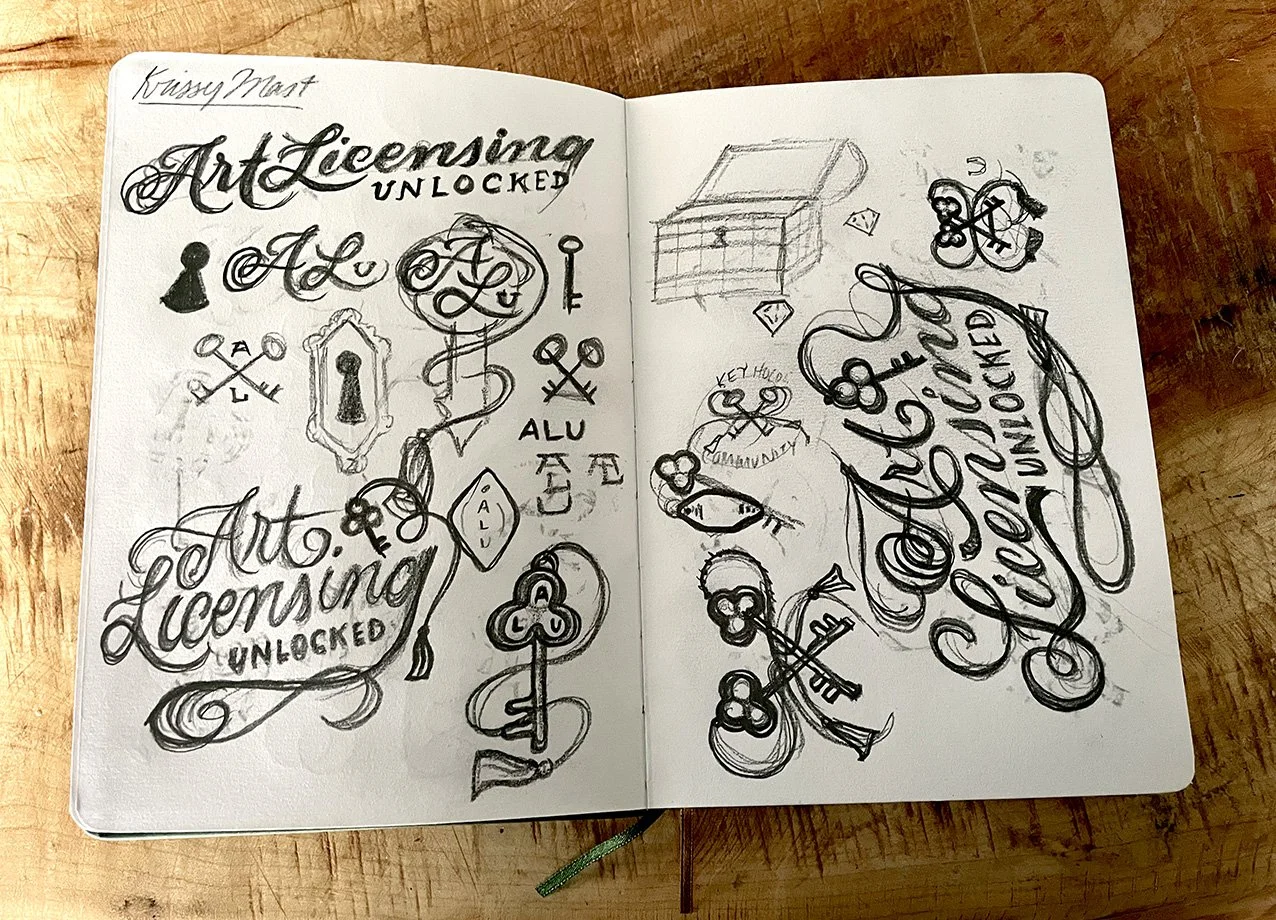 Krissy Mast
Art Licensing
UNLOCKED
ALU
ALU
A
L
ALU
ALU
Art
Licensing
UNLOCKED
ALU
A
L U
U
KEY HOLDER
COMMUNITY
Art
Licensing
UNLOCKED